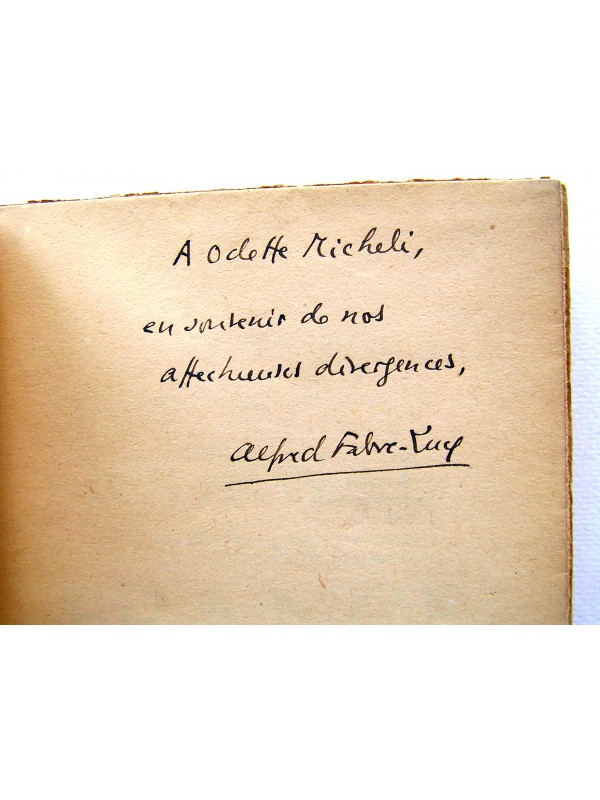 A Odette Micheli,
en souvenir de nos
affectueuses divergences,
Alfred Fabre-Luce